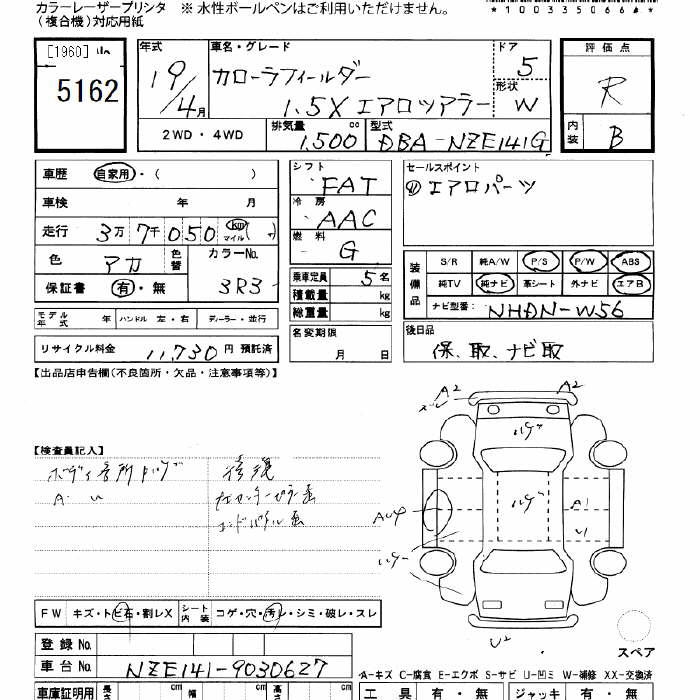 カラーレーザープリンタ ※ 水性ボールペンはご利用いただけません。
(複合機)対応用紙
*100335066#*
[1960] 小
5162
年式 19/4月
車名・グレード カローラフィールダー
1.5X エアロツアラー
ドア 5
形状 W
評価点 R
内装 B
2WD・4WD
排気量 1,500 cc
型式 DBA-NZE141G
車歴 自家用・( )
車検 年 月
走行 3万7千050 km マイル
色 アカ 色替 カラーNo. 3R3
保証書 有・無
モデル年式 年 ハンドル 左・右 ディーラー・並行
リサイクル料金 11,730 円 預託済
シフト FAT
冷房 AAC
燃料 G
乗車定員 5名
積載量 kg
総重量 kg
名変期限 月 日
セールスポイント
エアロパーツ
装備品 S/R 純A/W P/S P/W ABS
純TV 純ナビ 革シート 外ナビ エアB
ナビ型番: NHDN-W56
後日品
保、取、ナビ取
【出品店申告欄(不良箇所・欠品・注意事項等)】
【検査員記入】
ボディ各所
A・U
A2
A2
ハゲ
ハゲ
A1
U1
ハゲ
U2
スペア
FW キズ・トビ石・割レX
シート内装 コゲ・穴・汚レ・シミ・破レ・スレ
登録No.
車台No. NZE141-9030627
A-キズ C-腐食 E-エクボ S-サビ U-凹ミ W-補修 XX-交換済
車庫証明用 長さ cm 幅 cm 高さ cm
工具 有・無 ジャッキ 有・無